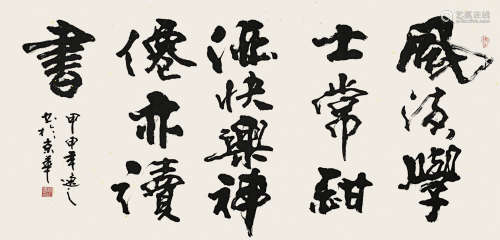 風流學
士常酣
酒快樂神
僊亦讀
書
甲申年逸之
書於京華